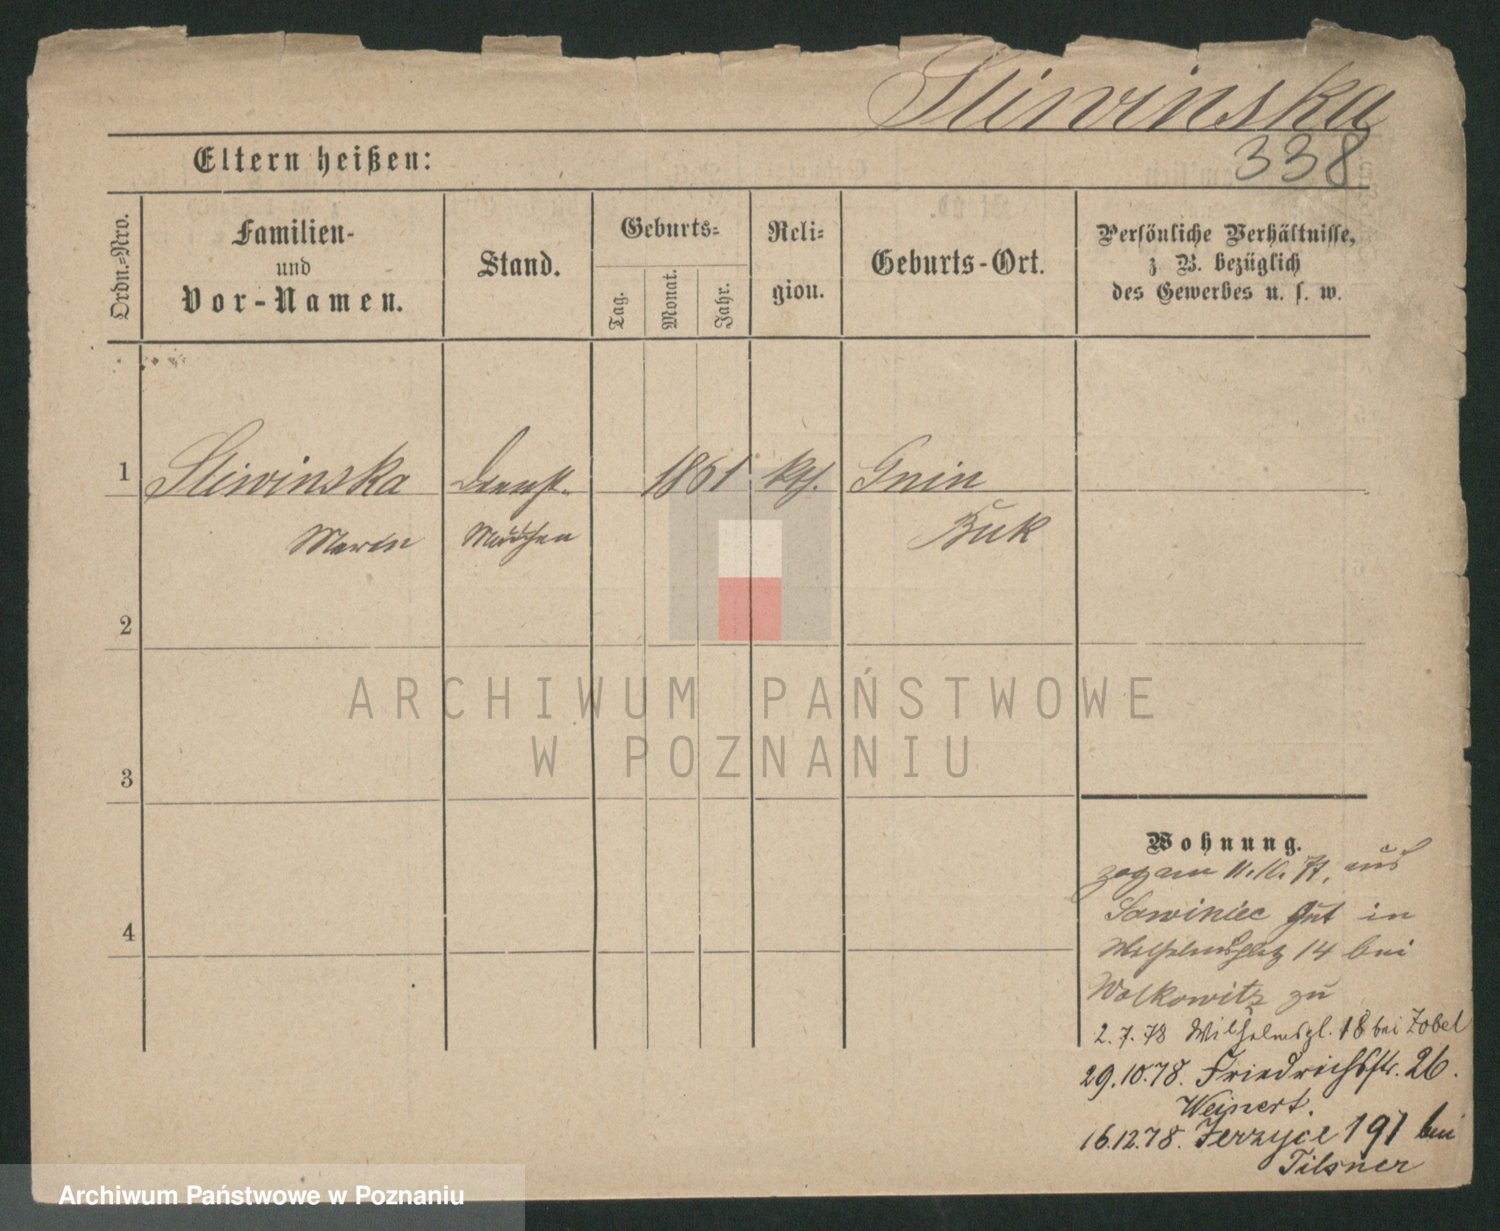 Sliwinska
338
Eltern heißen:
Ordn.-Nro.
Familien-
und
Vor-Namen.
Stand.
Geburts-
Tag.
Monat.
Jahr.
Reli-
gion.
Geburts-Ort.
Persönliche Verhältnisse,
z. B. bezüglich
des Gewerbes u. s. w.
1 Sliwinska Dienst- 1861 kth. Gnin
Marie Mädchen Buk
2
3
4
ARCHIWUM PAŃSTWOWE
W POZNANIU
Wohnung.
zog am 11. 11. 77. aus
Sawiniec Gut in
Wilhelmsplatz 14 bei
Wolkowitz zu
2.7.78 Wilhelmspl. 18 bei Zobel
29.10.78. Friedrichsstr. 26.
Weinert.
16.12.78. Jerzyce 191 bei
Tilsner
Archiwum Państwowe w Poznaniu